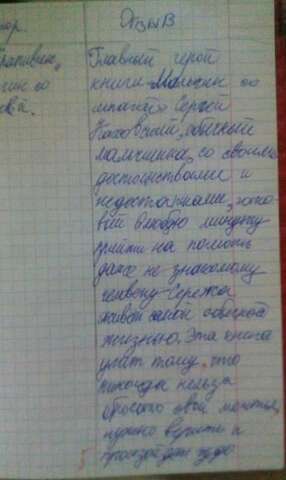 ор.
Отзыв
Крапивин,
чик со
ой.
Главный герой
книги Мальчик со
шпагой Сергей
Каховский, обычный
мальчишка, со своими
достоинствами и
недостатками, гото-
вый в любую минуту
прийти на помощь
даже не знакомому
человеку. Сережа
живёт самой обычной
жизнью. Эта книга
учит тому, что
никогда нельзя
бросать свои мечты,
нужно верить и
произойдёт чудо